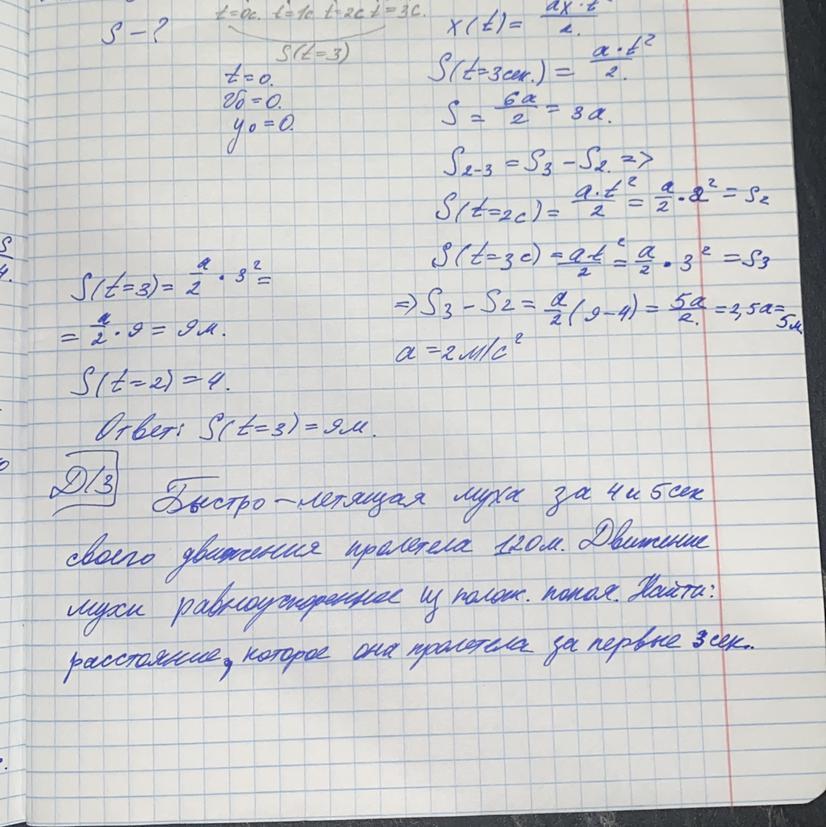 t=0c. t=1c t=2c t=3c.
S-?
S(t=3)
t=0.
v₀=0.
y₀=0.
x(t)= ax·t²/2.
S(t=3сек.)= a·t²/2.
S= 6a/2 = 3a.
S₂₋₃ = S₃ - S₂ =>
S(t=2c)= a·t²/2 = a/2 · 2² = S₂
S(t=3c) = at²/2 = a/2 · 3² = S₃
=> S₃ - S₂ = a/2 (9-4) = 5a/2. = 2,5a = 5м
a = 2м/с²
S(t=3)= a/2 · 3² =
= a/2 · 9 = 9м.
S(t=2) = 4.
Ответ: S(t=3) = 9м.
Д/З Быстро-летящая муха за 4 и 5 сек
своего движения пролетела 120м. Движение
мухи равноускоренное из полож. покоя. Найти:
расстояние, которое она пролетела за первые 3 сек.